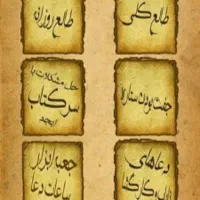 طالع کلی
طالع روزانه
جفت بودن ستاره
حل مشکلات با
سرکتاب
ابجد
دعاهای
نایاب و کارگشا
جعبه ابزار
ساعات دعا